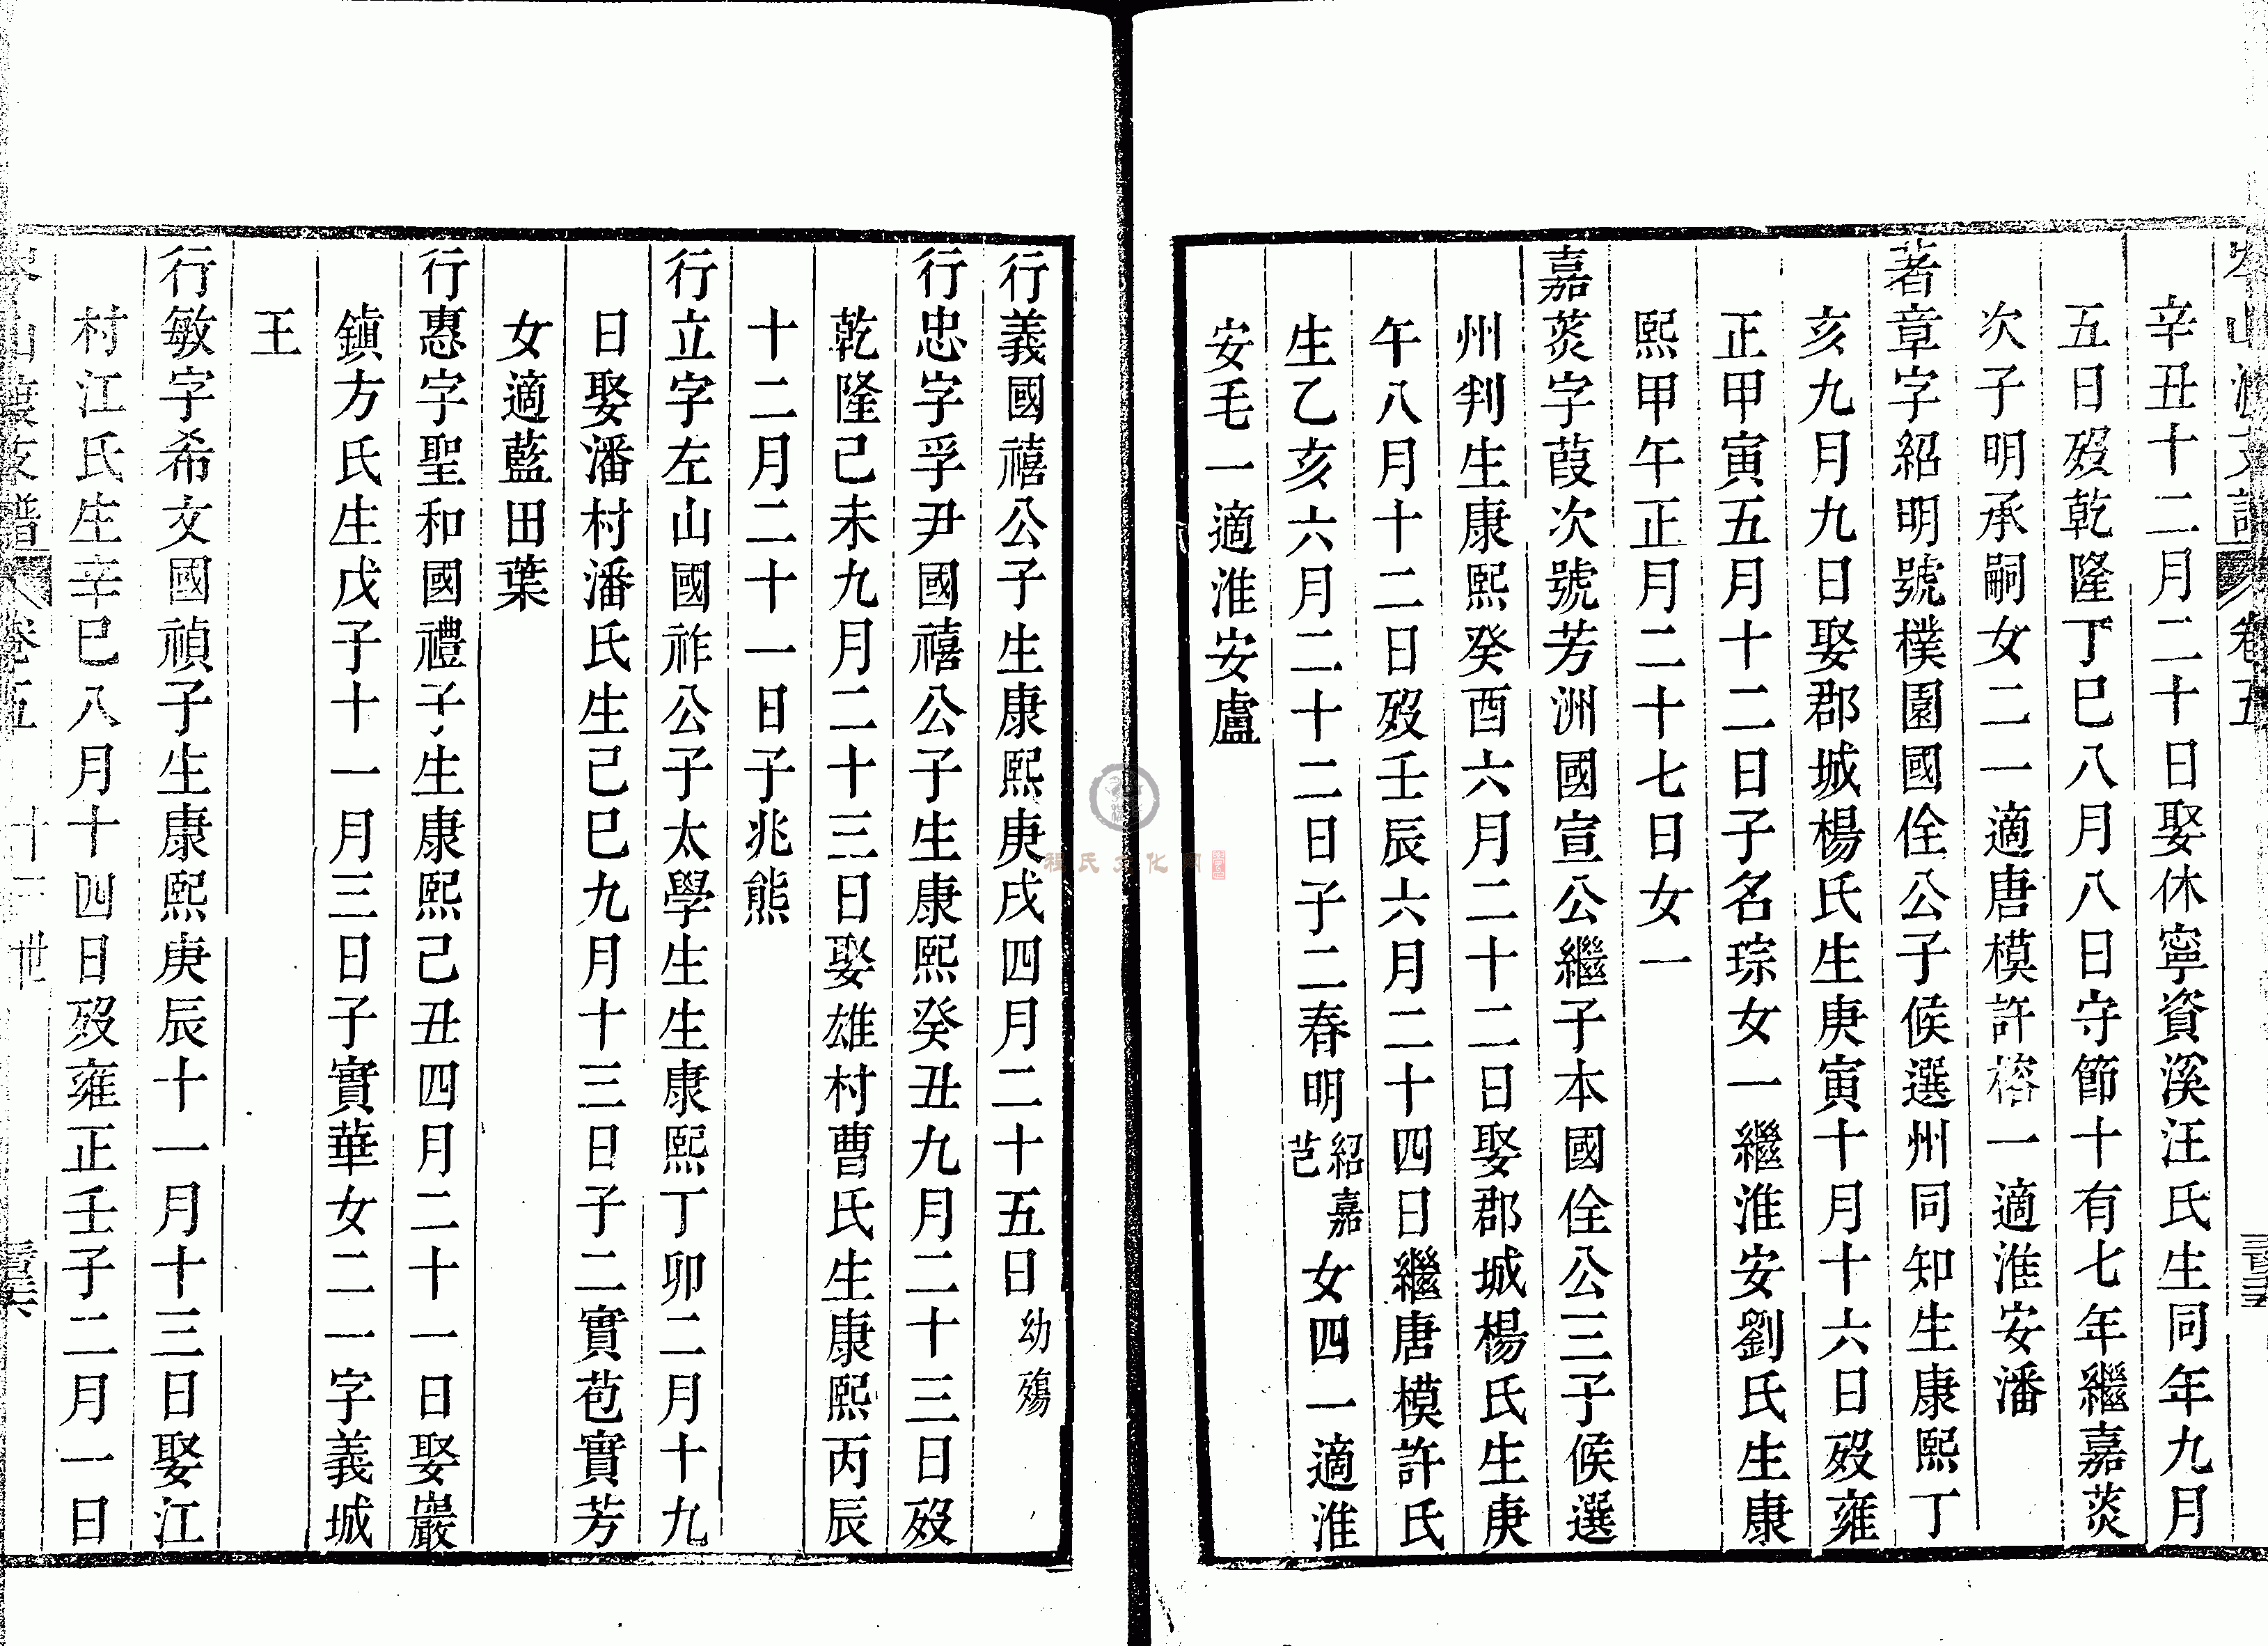 辛丑十二月二十日娶休寧資溪汪氏生同年九月
五日歿乾隆丁巳八月八日守節十有七年繼嘉荻
次子明承嗣女二一適唐模許榕一適淮安潘
著章字紹明號樸園國佺公子候選州同知生康熙丁
亥九月九日娶郡城楊氏生庚寅十月十六日歿雍
正甲寅五月十二日子名琮女一繼淮安劉氏生康
熙甲午正月二十七日女一
嘉荻字葭次號芳洲國宣公繼子本國佺公三子候選
州判生康熙癸酉六月二十二日娶郡城楊氏生庚
午八月十二日歿壬辰六月二十四日繼唐模許氏
生乙亥六月二十二日子二春明紹嘉芑女四一適淮
安毛一適淮安盧
行義國禧公子生康熙庚戌四月二十五日幼殤
行忠字孚尹國禧公子生康熙癸丑九月二十三日歿
乾隆己未九月二十三日娶雄村曹氏生康熙丙辰
十二月二十一日子兆熊
行立字左山國祚公子太學生生康熙丁卯二月十九
日娶潘村潘氏生己巳九月十三日子二實苞實芳
女適藍田葉
行惠字聖和國禮子生康熙己丑四月二十一日娶巖
鎮方氏生戊子十一月三日子實華女二一字義城
王
行敏字希文國禎子生康熙庚辰十一月十三日娶江
村江氏生辛巳八月十四日歿雍正壬子二月一日
卷五 十三世
程氏文化网